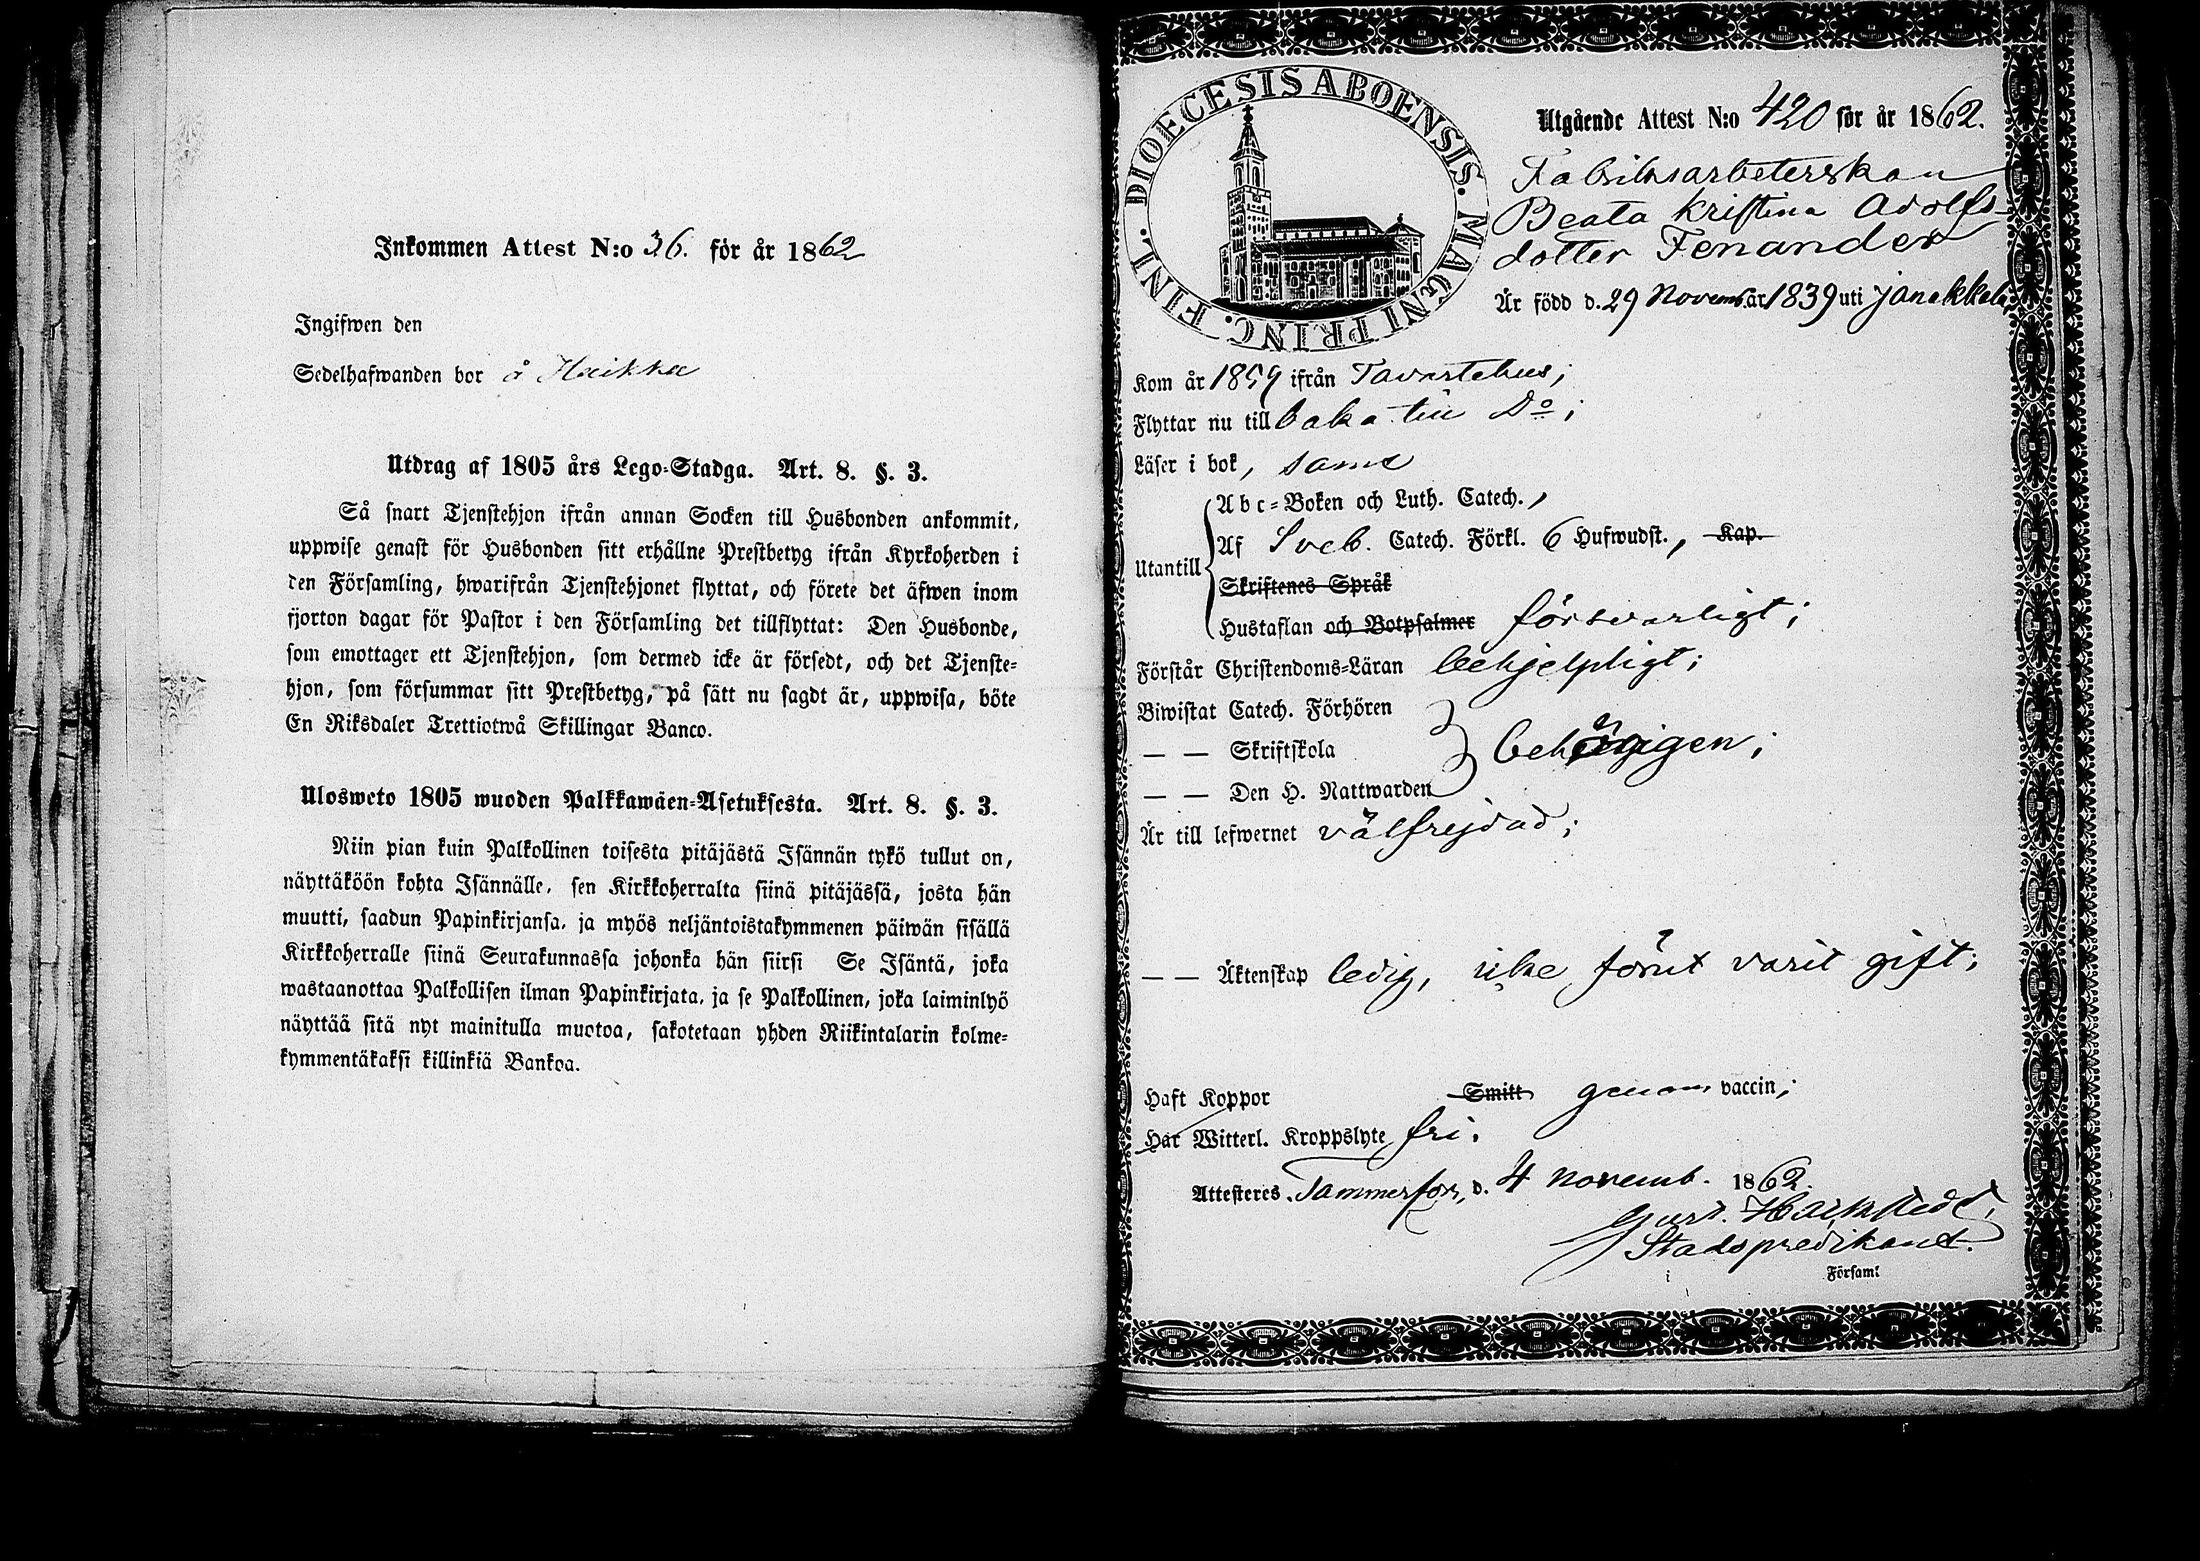 Inkommen Attest N:o 36. för år 1862
Ingifwen den
Sedelhafwanden bor å Haikka
Utdrag af 1805 års Lego-Stadga. Art. 8. §. 3.
Så snart Tjenstehjon ifrån annan Socken till Husbonden ankommit,
uppwise genast för Husbonden sitt erhållne Prestbetyg ifrån Kyrkoherden i
den Församling, hwarifrån Tjenstehjonet flyttat, och förete det äfwen inom
fjorton dagar för Pastor i den Församling det tillflyttat: Den Husbonde,
som emottager ett Tjenstehjon, som dermed icke är försedt, och det Tjenste-
hjon, som försummar sitt Prestbetyg, på sätt nu sagdt är, uppwisa, böte
En Riksdaler Trettiotwå Skillingar Banco.
Ulosweto 1805 wuoden Palkkawäen-Asetuksesta. Art. 8. §. 3.
Niin pian kuin Palkollinen toisesta pitäjästä Isännän tykö tullut on,
näyttäköön kohta Isännälle, sen Kirkkoherralta siinä pitäjässä, josta hän
muutti, saadun Papinkirjansa, ja myös neljäntoistakymmenen päiwän sisällä
Kirkkoherralle siinä Seurakunnassa johonka hän siirsi Se Isäntä, joka
wastaanottaa Palkollisen ilman Papinkirjata, ja se Palkollinen, joka laiminlyö
näyttää sitä nyt mainitulla muotoa, sakotetaan yhden Riikintalarin kolme-
kymmentäkaksi killinkiä Bankoa.
DIOECESIS ABOENSIS. MAGNI PRINC. FINL.
Utgående Attest N:o 420 för år 1862.
Fabriksarbeterskan
Beata Kristina Adolfs-
dotter Fenander
Är född d. 29 Novemb. år 1839 uti Janakkala
Kom år 1859 ifrån Tavastehus;
Flyttar nu till baka till Do;
Läser i bok, samt
Abc-Boken och Luth. Catech.,
Utantill Af Sveb. Catech. Förkl. 6 Hufwudst., Kap.
Skriftenes Språk
Hustaflan och Botpsalmer försvarligt;
Förstår Christendoms-Läran behjelpligt;
Biwistat Catech. Förhören
— — Skriftskola behörigen;
— — Den H. Nattwarden
Är till lefwernet välfrejdad;
— — Äktenskap ledig, icke förut varit gift;
Haft Koppor Smitt genom vaccin;
Har Witterl. Kroppslyte fri.
Attesteras, Tammerfors, d. 4 novemb. 1862.
Gust.
Stadspredikant.
i Församl